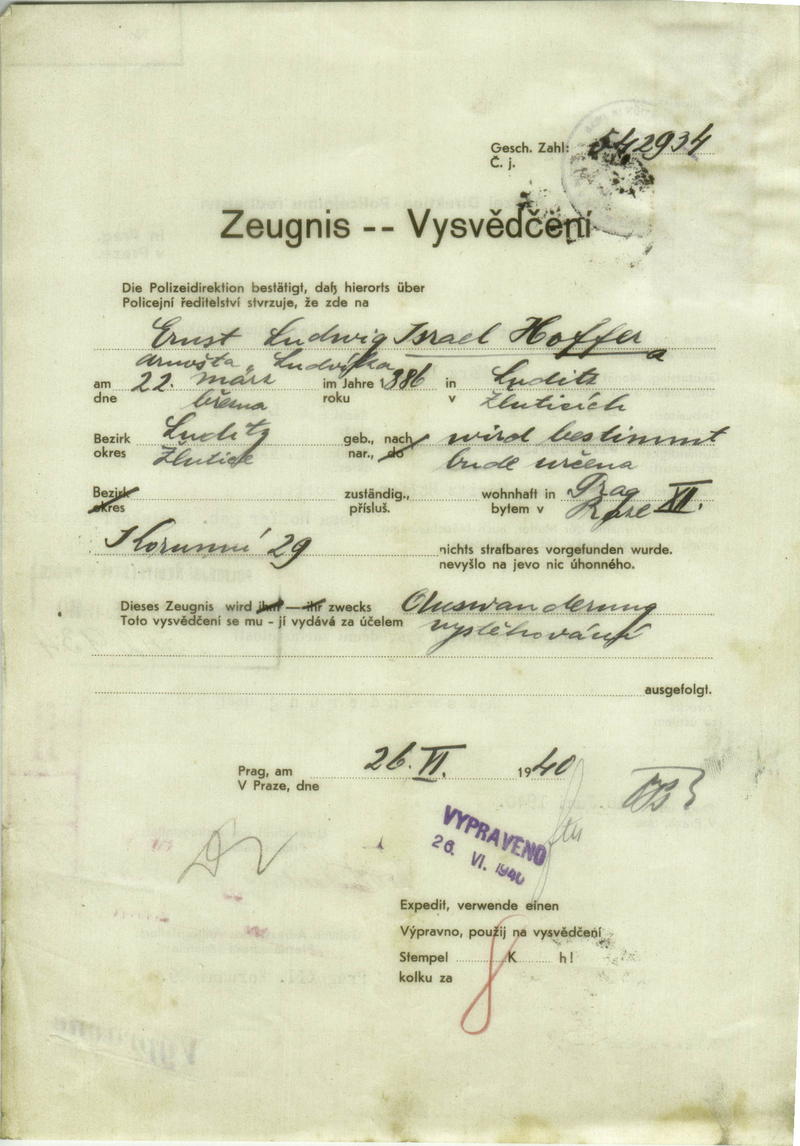 Gesch. Zahl: 542934
Č. j.
Zeugnis -- Vysvědčení
Die Polizeidirektion bestätigt, daß hierorts über
Policejní ředitelství stvrzuje, že zde na
Ernst Ludwig Israel Hoffer
Arnošta Ludvíka a
am 22. März im Jahre 1886 in Luditz
dne března roku v Žluticích
Bezirk Luditz geb., nach wird bestimmt
okres Žlutice nar., do bude určena
Bezirk zuständig., wohnhaft in Prag XII.
okres přísluš. bytem v Praze
Korunní 29 nichts strafbares vorgefunden wurde.
nevyšlo na jevo nic úhonného.
Dieses Zeugnis wird ihm — ihr zwecks Auswanderung
Toto vysvědčení se mu - jí vydává za účelem vystěhování
ausgefolgt.
Prag, am 26. VI. 1940
V Praze, dne
VYPRAVENO
26. VI. 1940
Expedit, verwende einen
Výpravno, použij na vysvědčení
Stempel K h!
kolku za 8